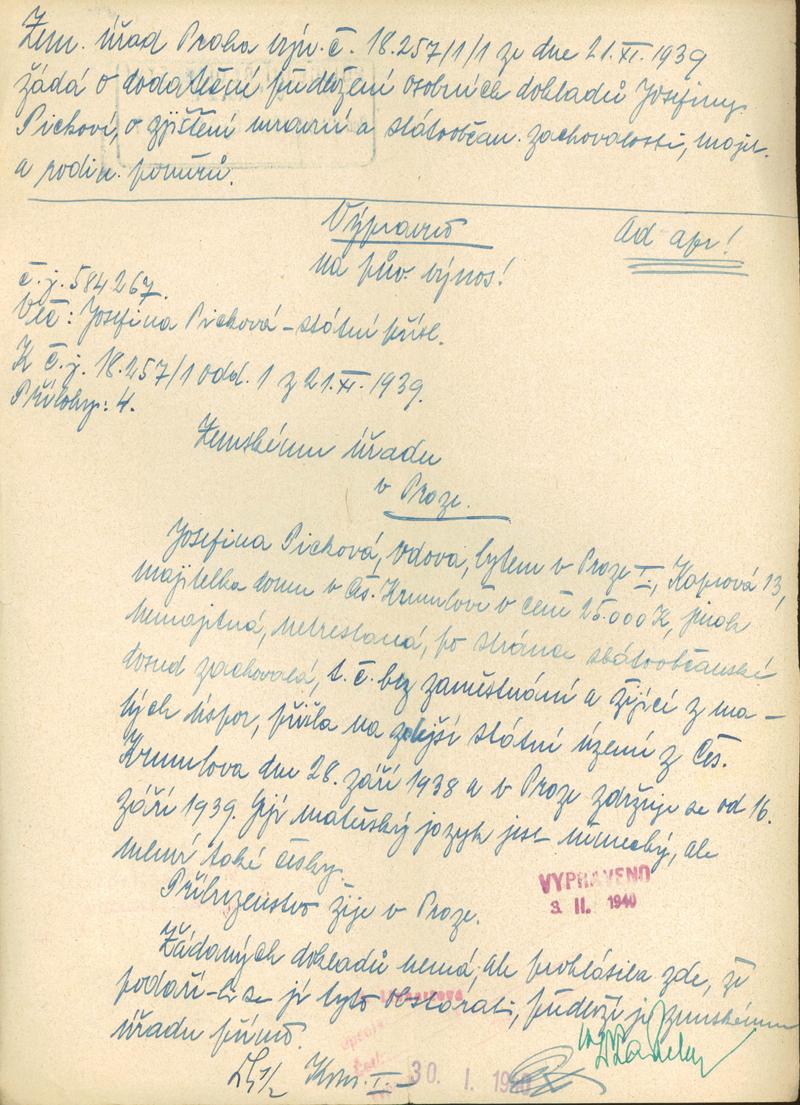 Zem. úřad Praha výn. č. 18.257/1/1 ze dne 21.XI.1939
žádá o dodatečné předložení osobních dokladů Josefiny
Pickové, o zjištění mravní a státoobčan. zachovalosti, majet.
a rodin. poměrů.
Výpravně Ad apr!
na pův. výnos!
č.j. 584267.
Věc: Josefina Picková – státní přísl.
K č.j. 18.257/1 odd. 1 z 21.XI.1939.
Přílohy: 4.
Zemskému úřadu
v Praze.
Josefina Picková, vdova, bytem v Praze I., Kaprová 13,
majitelka domu v Čes. Krumlově v ceně 25.000 K, jinak
nemajetná, netrestaná, po stránce státoobčanské
dosud zachovalá, t. č. bez zaměstnání a žijící z ma-
lých úspor, přišla na zdejší státní území z Čes.
Krumlova dne 28. září 1938 a v Praze zdržuje se od 16.
září 1939. Její mateřský jazyk jest německý, ale
mluví také česky.
Příbuzenstvo žije v Praze.
VYPRAVENO
3. II. 1940
Žádaných dokladů nemá, ale prohlásila zde, že
podaří-li se jí tyto obstarati, předloží je zemskému
úřadu přímo.
Kom. I.
30. I. 1940